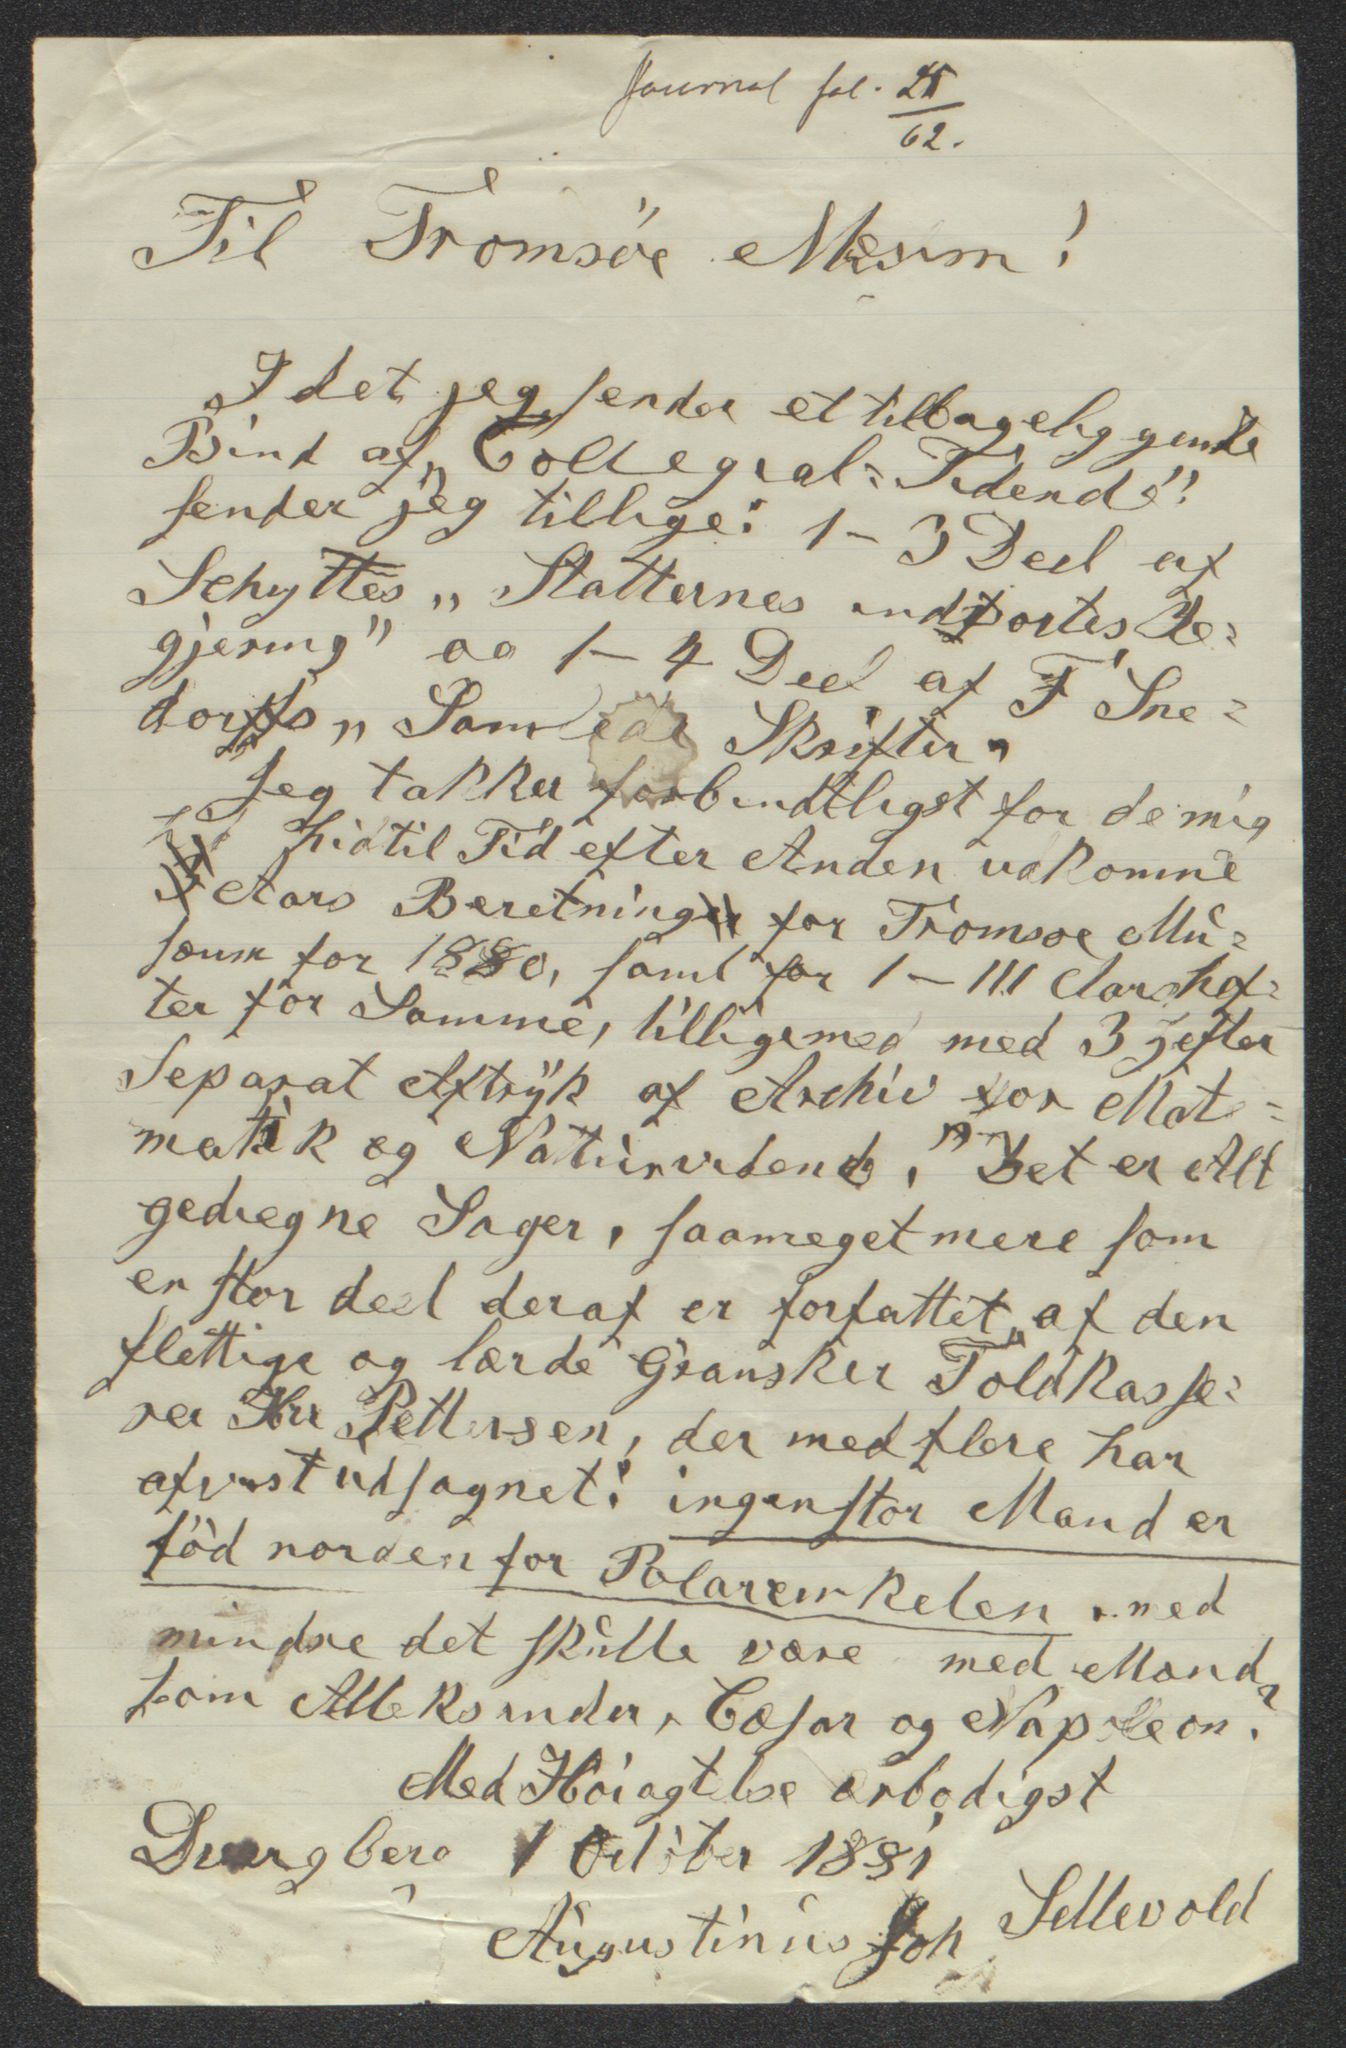 Journal fol. 25
62.
Til Tromsöe Mesum!
I det jeg sender et tilbageliggende
Bind af „Collegial= Tidende":
sender jeg tillige: 1 - 3 Deel af
Schyttes „Statternes indvortes Re=
gjering" og 1 - 4 Deel af F Sne=
dorffs „Samlede Skrifter"
Jeg takker forbindtligst for de mig
hidtil Tid efter Anden udkomne
Aars Beretninger for Tromsøe Mu=
soum for 1880, samt for 1 - III Aarshef=
ter for Samme, tilligemed med 3 Hefter
Separat Aftryk af Archiv for Mate=
matik og Naturvidensk, Det er Alt
gediegne Sager, saameget mere som
en stor deel deraf er forfattet af den
flettige og lærde Gransker Toldkasse=
rer Hrr Pettersen, der med flere har
afvist udsagnet: ingen stor Mand er
född norden for Polarcirkelen, med
mindre det skulle være med Mænd
som Alleksander, Cæsar og Napoleon.
Med Høiagtelse ærbødigst
Dvergberg 1 October 1881
Augustinius Joh Sellevold